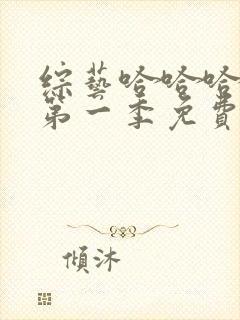 綜藝哈哈哈
第一季免費
傾沐